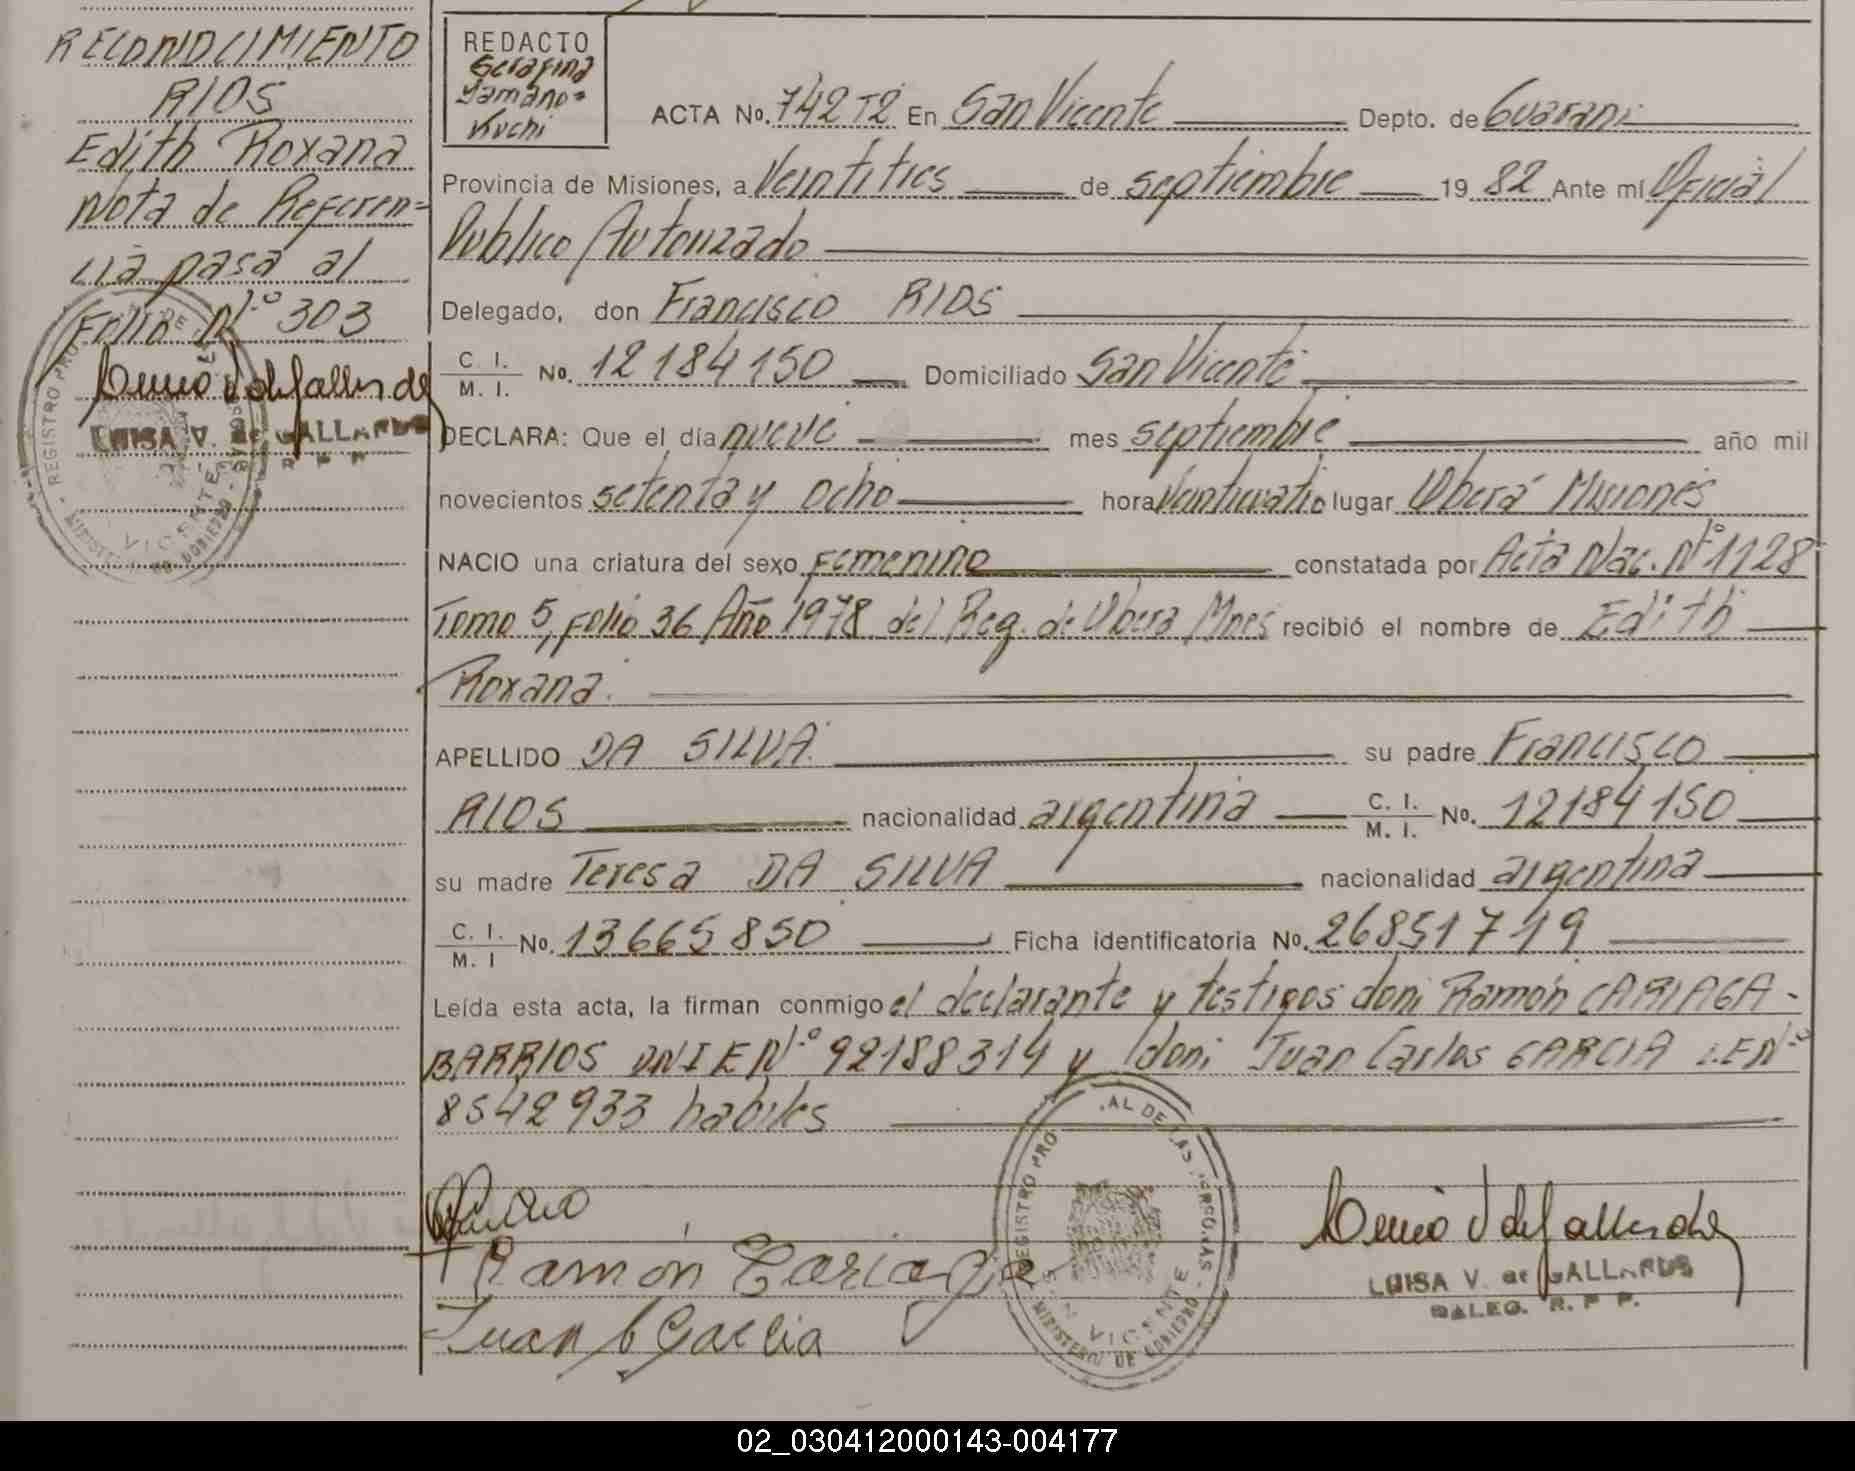 RECONOCIMIENTO
RIOS
Edith Roxana
Nota de Referen=
cia pasa al
Folio N.º 303
LUISA V. de GALLARDO
R. P. P.
REGISTRO PRO
VICENTE
MINISTERIO DE GOBIERNO
REDACTO
Serafina
Yamano=
Kuchi
ACTA No. 742 T2 En San Vicente Depto. de Guarani
Provincia de Misiones, a Veintitres de septiembre 19 82 Ante mí Oficial
Publico Autorizado
Delegado, don Francisco RIOS
C. I. / M. I. No. 12184150 Domiciliado San Vicente
DECLARA: Que el día nueve mes septiembre año mil
novecientos setenta y ocho hora Veinticuatro lugar Oberá Misiones
NACIO una criatura del sexo Femenino constatada por Acta Nac. Nº 1128
Tomo 5, folio 36 Año 1978 del Reg. de Obera Mnes recibió el nombre de Edith
Roxana.
APELLIDO DA SILVA. su padre Francisco
RIOS nacionalidad argentina C. I. / M. I. No. 12184150
su madre Teresa DA SILVA nacionalidad argentina
C. I. / M. I No. 13665850 Ficha identificatoria No. 26851719
Leída esta acta, la firman conmigo el declarante y testigos don: Ramón CARIAGA-
BARRIOS DNI E N.º 92188314 y don: Juan Carlos GARCIA L.E Nº
8542933 habiles
Ramón Cariaga
Juan C Garcia
REGISTRO PRO AL DE LAS PERSONAS
SAN VICENTE
MINISTERIO DE GOBIERNO
LUISA V. de GALLARDO
DALEG. R. P P.
02_030412000143-004177